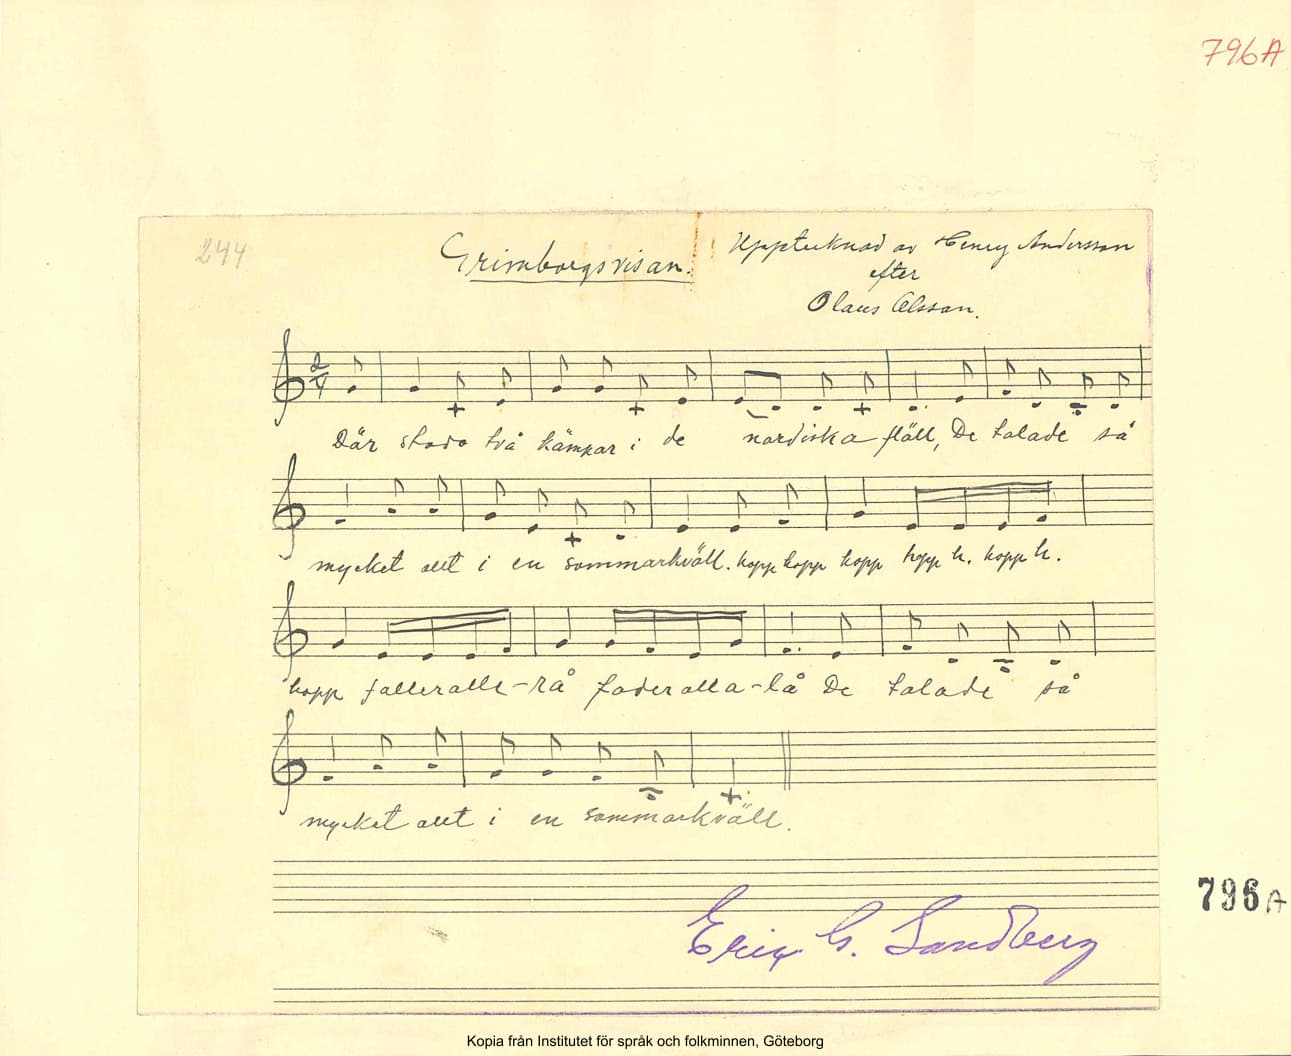 796A
244
Grimborgsvisan.
Upptecknad av Henry Andersson
efter
Olaus Olsson.
2/4
Där stodo två kämpar i de nordiska fjäll, De talade så
mycket allt i en sommarkväll. hopp hopp hopp hopp h. hopp h.
hopp falleralle-rå faderalla-lå De talade så
mycket allt i en sommarkväll.
796A
Erik G. Sandberg
Kopia från Institutet för språk och folkminnen, Göteborg